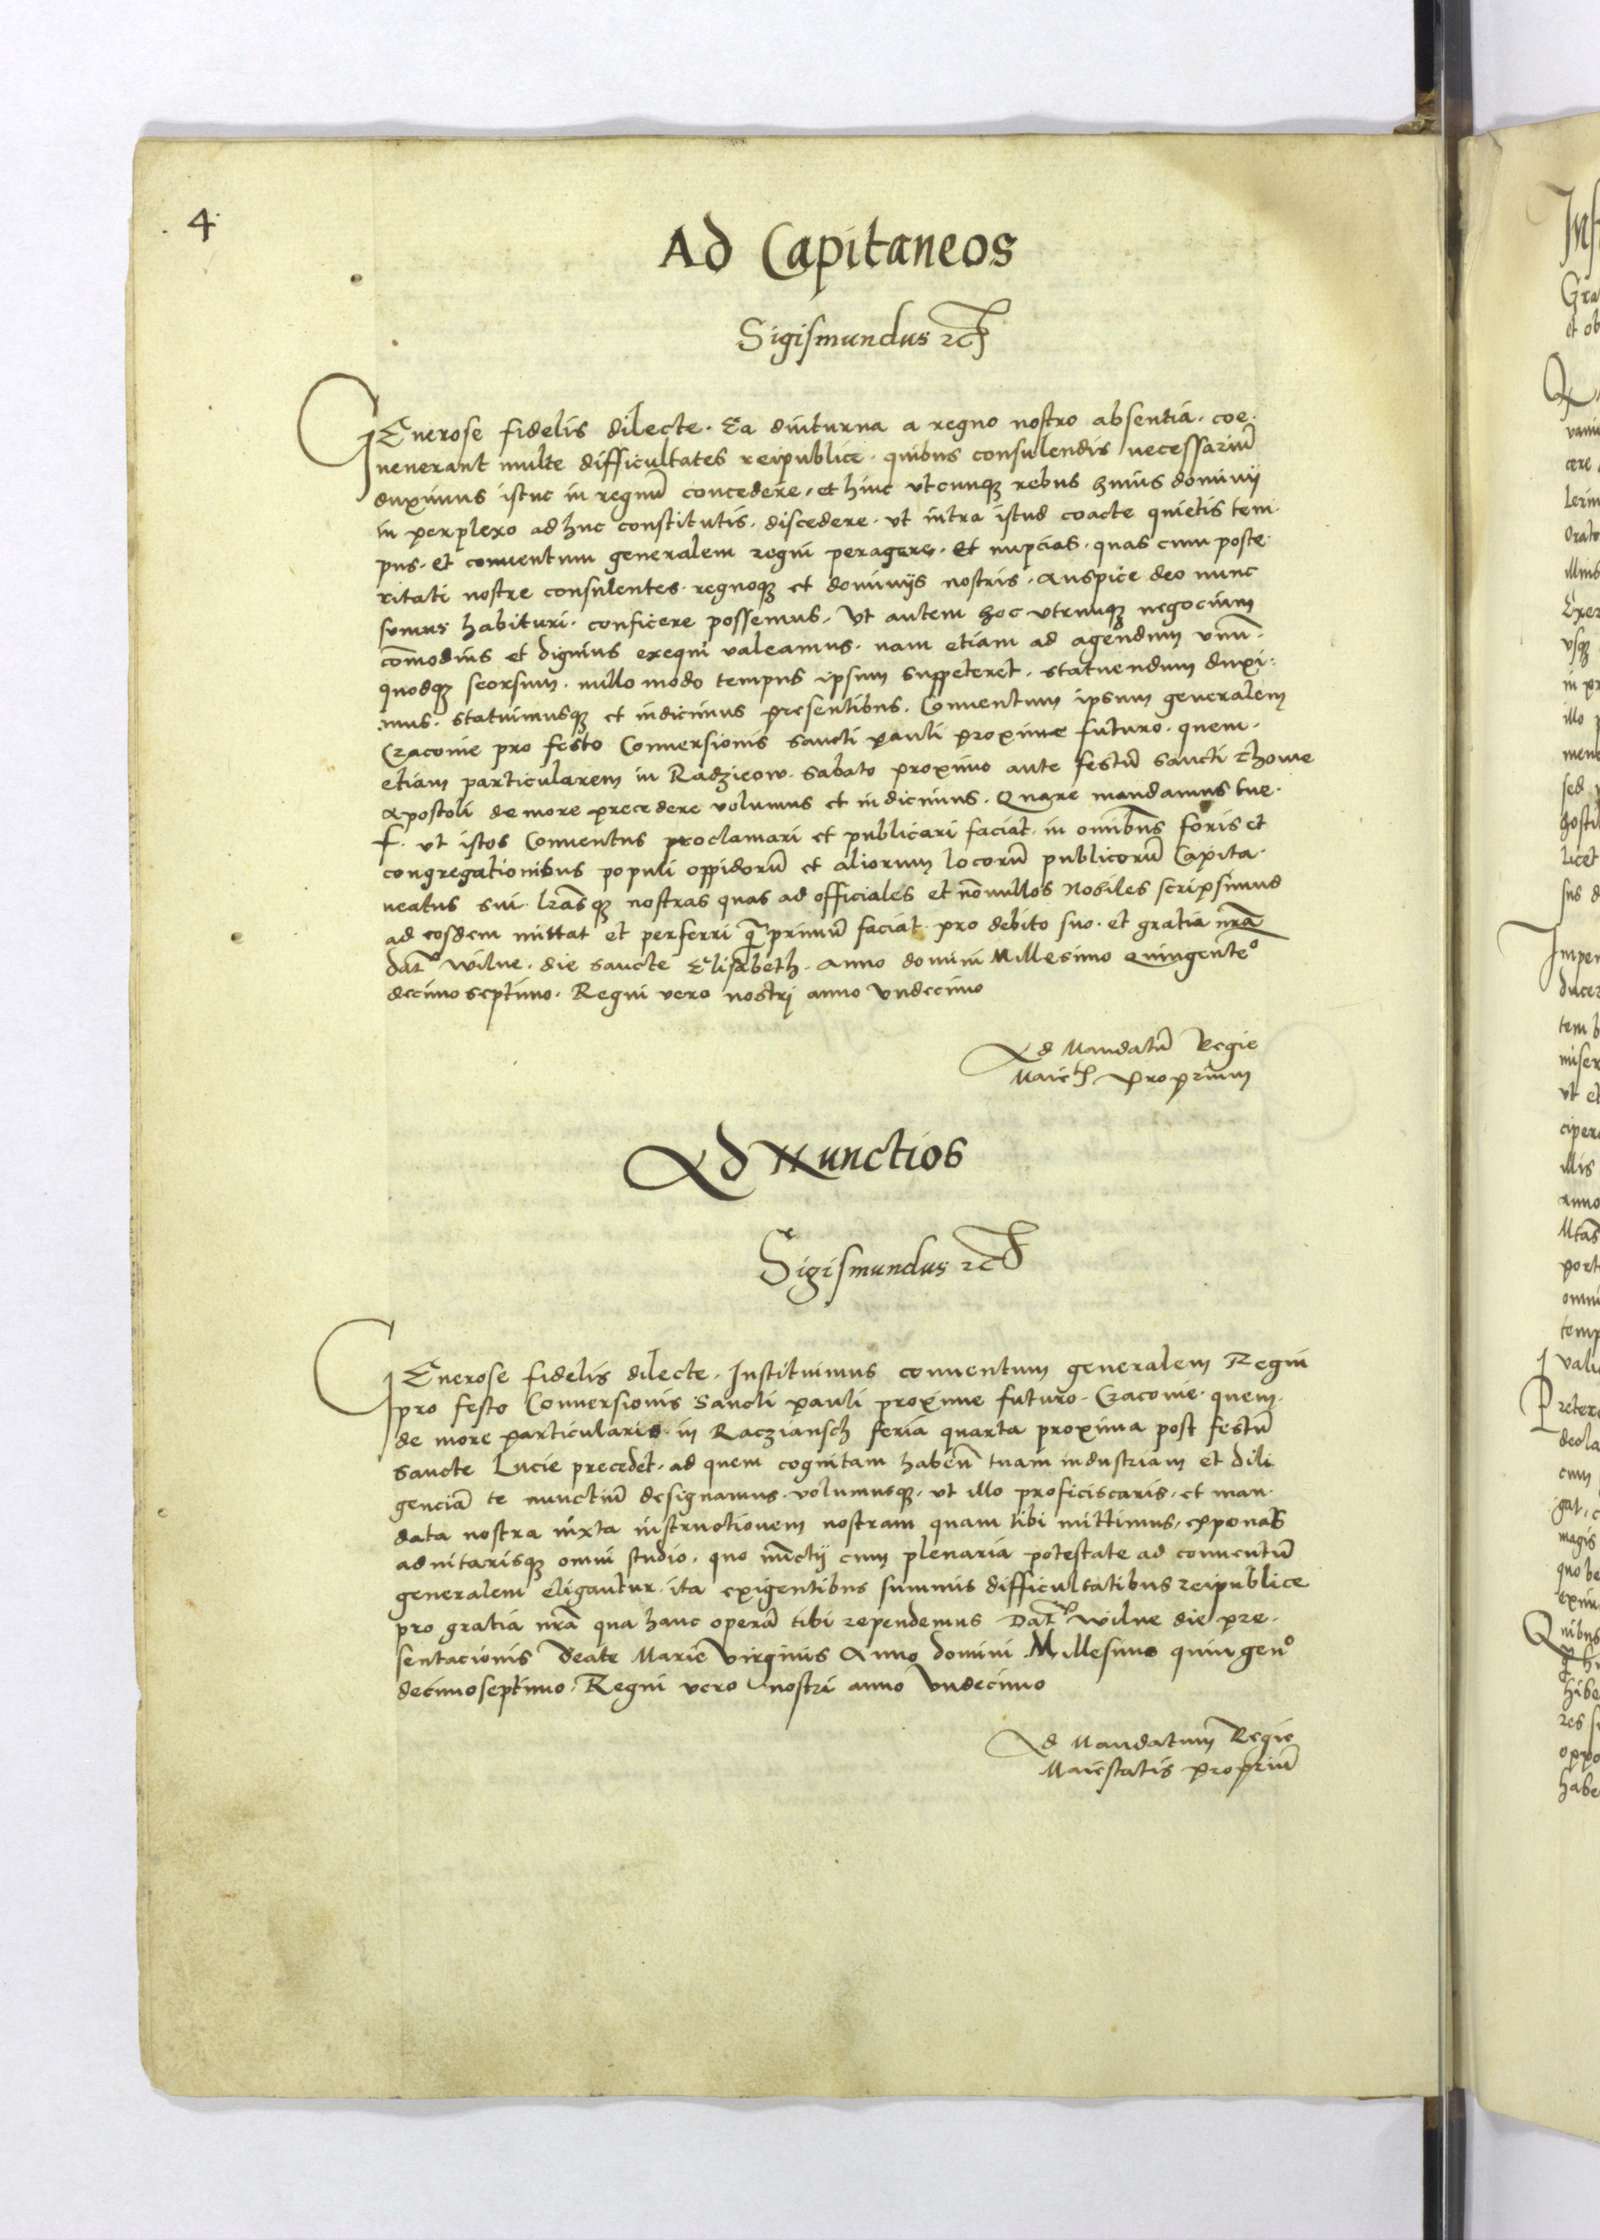 4
Ad Capitaneos
Sigismundus etc
GEnerose fidelis dilecte. Ea diuturna a regno nostro absentia. coe.
uenerant multe difficultates reipublice. quibus consulendis necessariũ
duximus istuc in regnũ concedere, et hinc utcunqȝ rebus huius dominij
in perplexo adhuc constitutis. discedere. ut intra istud coacte quietis tem.
pus. et conuentum generalem regni peragere. Et nupcias. quas cum poste.
ritati nostre consulentes. regnoqȝ et dominijs nostris. auspice deo nunc
sumus habituri. conficere possemus. Ut autem hoc utrunqȝ negocium
cõmodius et dignius exequi ualeamus. nam etiam ad agendum unũ.
quodqȝ seorsum. nullo modo tempus ipsum suppeteret. statuendum duxi.
mus. statuimusqȝ et indicimus presentibus. Conuentum ipsum generalem
Cracouie pro festo Conuersionis sancti pauli proxime futuro. quem.
etiam particularem in Radzieow. sabato proximo ante festũ sancti thome
apostoli de more precedere uolumus et indicimus. Quare mandamus tue.
f. ut istos Conuentus proclamari et publicari faciat. in omĩbus foris et
congregationibus populi oppidorũ et aliorum locorũ publicorũ Capita.
neatus sui. lrãsqȝ nostras quas ad officiales et nõnullos nobiles scripsimus
ad eosdem mittat et perferri q̃ primũ faciat. pro debito suo. et gratia nrã
dat wilne. die sancte Elisabeth. anno domini Millesimo quingenteº
decimoseptimo. Regni vero nostrj anno vndecimo
Ad Mandatũ Regie
Maietis proprium
Ad Nunctios
Sigismundus etc
GEnerose fidelis dilecte. Instituimus conuentum generalem Regni
pro festo Conuersionis Sancti pauli proxime futuro. Cracouie. quem.
de more particularis in Racziansch feria quarta proxima post festũ
sancte Lucie precedet. ad quem cognitam habeñ tuam industriam et dili
genciã te nunctiũ designamus. uolumusqȝ. ut illo proficiscaris. et man.
data nostra iuxta instructionem nostram quam tibi mittimus, exponas
adnitarisqȝ omni studio. quo nũctij cum plenaria potestate ad conuentũ
generalem eligantur. ita exigentibus summis difficultatibus reipublice
pro gratia nrã qua hanc operã tibi rependemus Dat wilne die pre.
sentacionis Beate Marie Virginis Anno domini Millesimo quingenº
decimoseptimo. Regni vero nostri anno vndecimo
Ad Mandatum Regie
Maiestatis propriũ